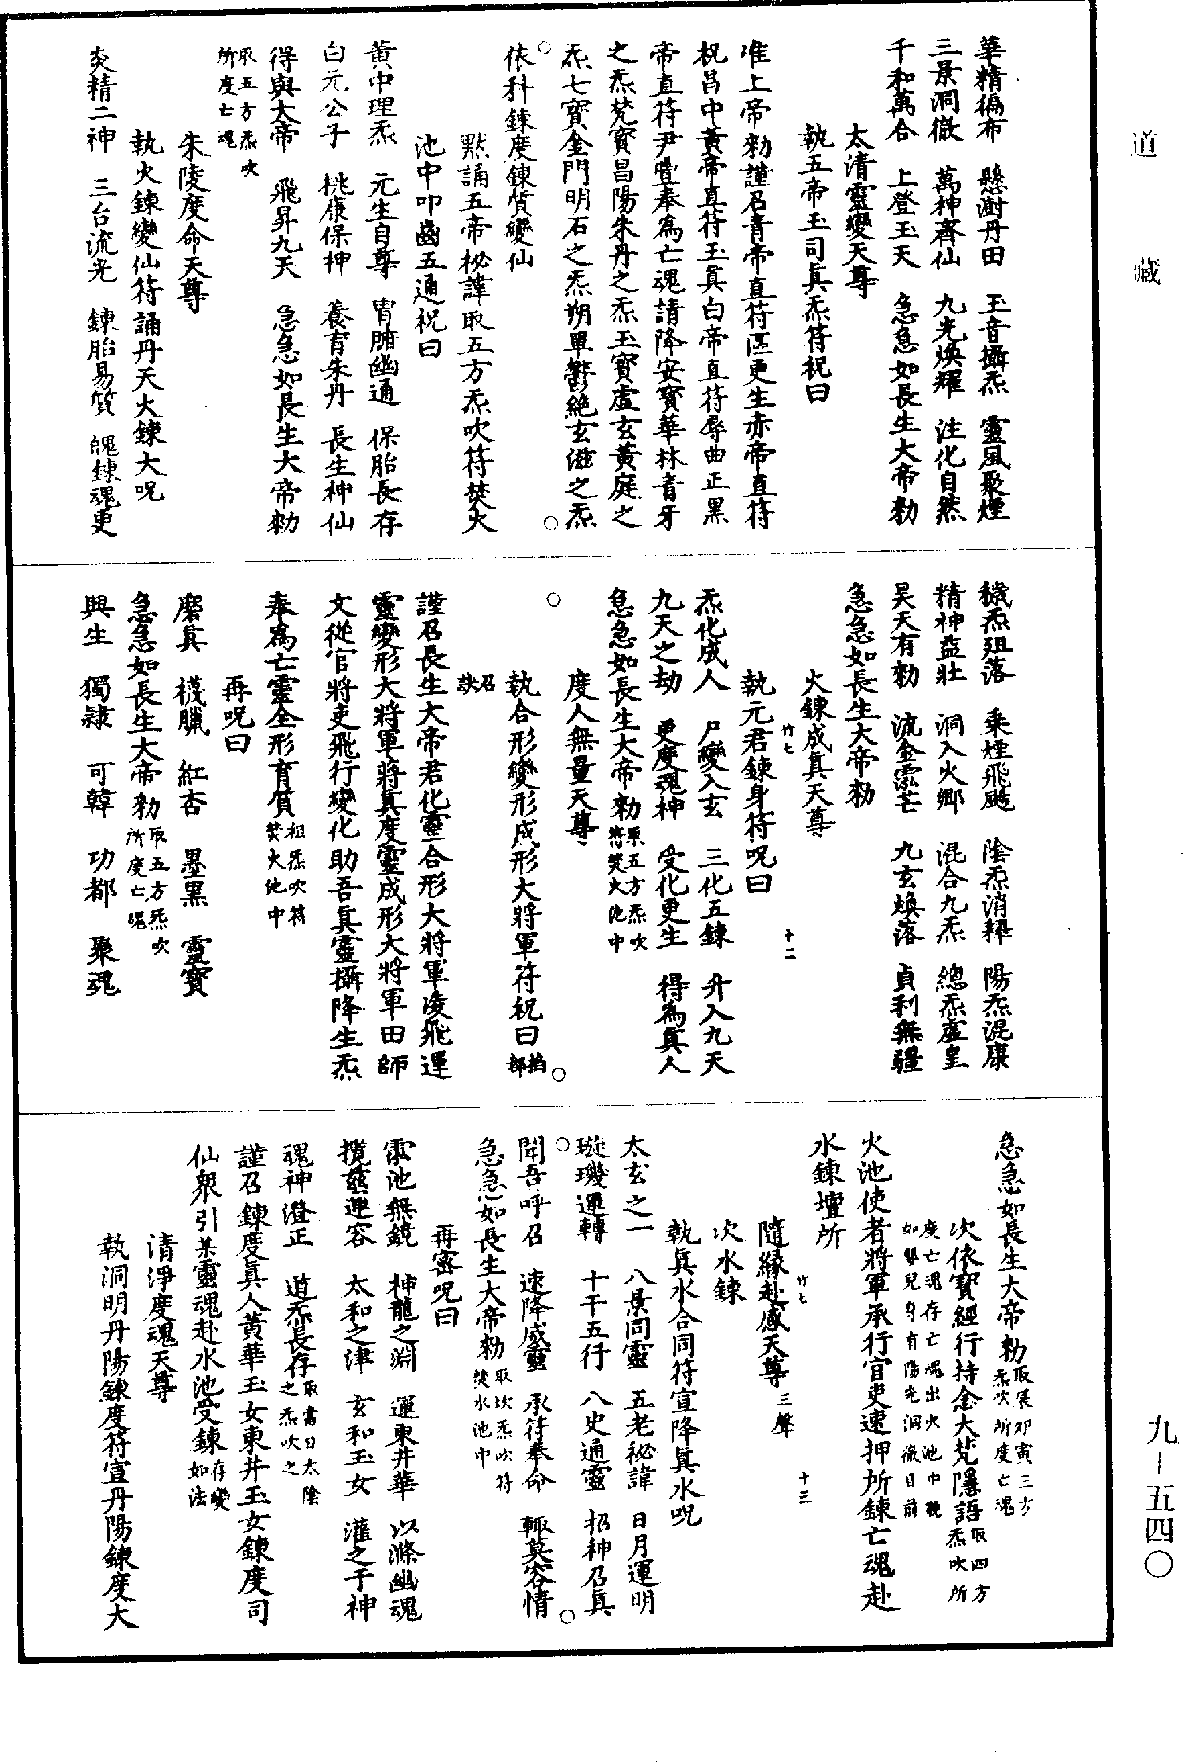 道藏
華精徧布　懸澍丹田　玉音攝炁　靈風聚煙
三景洞徹　萬神齊仙　九光煥耀　注化自然
千和萬合　上登玉天　急急如長生大帝勑
太清靈變天尊
執五帝玉司眞炁符祝曰
唯上帝勑謹召青帝直符區更生赤帝直符
祝昌中黃帝直符玉眞白帝直符辱曲正黑
帝直符尹豊奉爲亡魂請降安寶華林青牙
之炁梵寶昌陽朱丹之炁玉寶虛玄黃庭之
炁七寶金門明石之炁朔單鬱絶玄滋之炁
依科鍊度鍊質變仙
黙誦五帝秘諱取五方炁吹符焚火
池中叩齒五通祝曰
黃中理炁　元生自尊　胃腑幽通　保胎長存
白元公子　桃康保神　養育朱丹　長生神仙
得與大帝　飛昇九天　急急如長生大帝勑
取五方炁吹
所度亡魂
朱陵度命天尊
執火鍊變仙符誦丹天火鍊大呪
炎精二神　三台流光　鍊胎易質　魄鍊魂更
穢炁殂落　乘煙飛颺　陰炁消鑠　陽炁混康
精神益壯　洞入火鄉　混合九炁　總炁虛皇
昊天有勑　流金霐芒　九玄煥落　貞利無疆
急急如長生大帝勑
火鍊成眞天尊
竹七　十二
執元君鍊身符呪曰
炁化成人　尸變入玄　三化五鍊　升入九天
九天之劫　更度魂神　受化更生　得爲眞人
急急如長生大帝勑
度人無量天尊
執合形變形成形大將軍符祝曰
召
謹召長生大帝君化靈合形大將軍凌飛運
靈變形大將軍蔣眞度靈成形大將軍田師
文從官將吏飛行變化助吾眞靈攝降生炁
奉爲亡靈全形育質祖炁吹符焚火池中
再呪曰
磨眞　襪臘　紅杏　墨黑　靈寶
急急如長生大帝勑取五方炁吹所度亡魂
興生　獨隸　可韓　功都　聚魂
急急如長生大帝勑取辰卯寅三方炁吹所度亡魂
次依寶經行持念大梵隱語取四方炁吹所
度亡魂存亡魂出火池中貌
如嬰兒身有陽光洞徹目前
火池使者將軍承行官吏速押所鍊亡魂赴
水鍊壇所
竹七　十三
隨緣赴感天尊三聲
次水鍊
執眞水合同符宣降眞水呪
太玄之一　八景同靈　五老秘諱　日月運明
璇璣運轉　十干五行　八史通靈　招神召眞
聞吾呼召　速降威靈　承符奉命　輙莫容情
急急如長生大帝勑取坎炁吹符焚水池中
再密呪曰
雷池無鏡　神龍之淵　運東井華　以滌幽魂
攬茲運容　太和之津　玄和玉女　灌之于神
魂神澄正　道炁長存取當日太陰之炁吹之
謹召鍊度眞人黃華玉女東井玉女鍊度司
仙衆引某靈魂赴水池受鍊存變如法
清淨度魂天尊
執洞明丹陽鍊度符宣丹陽鍊度大
九－五四〇